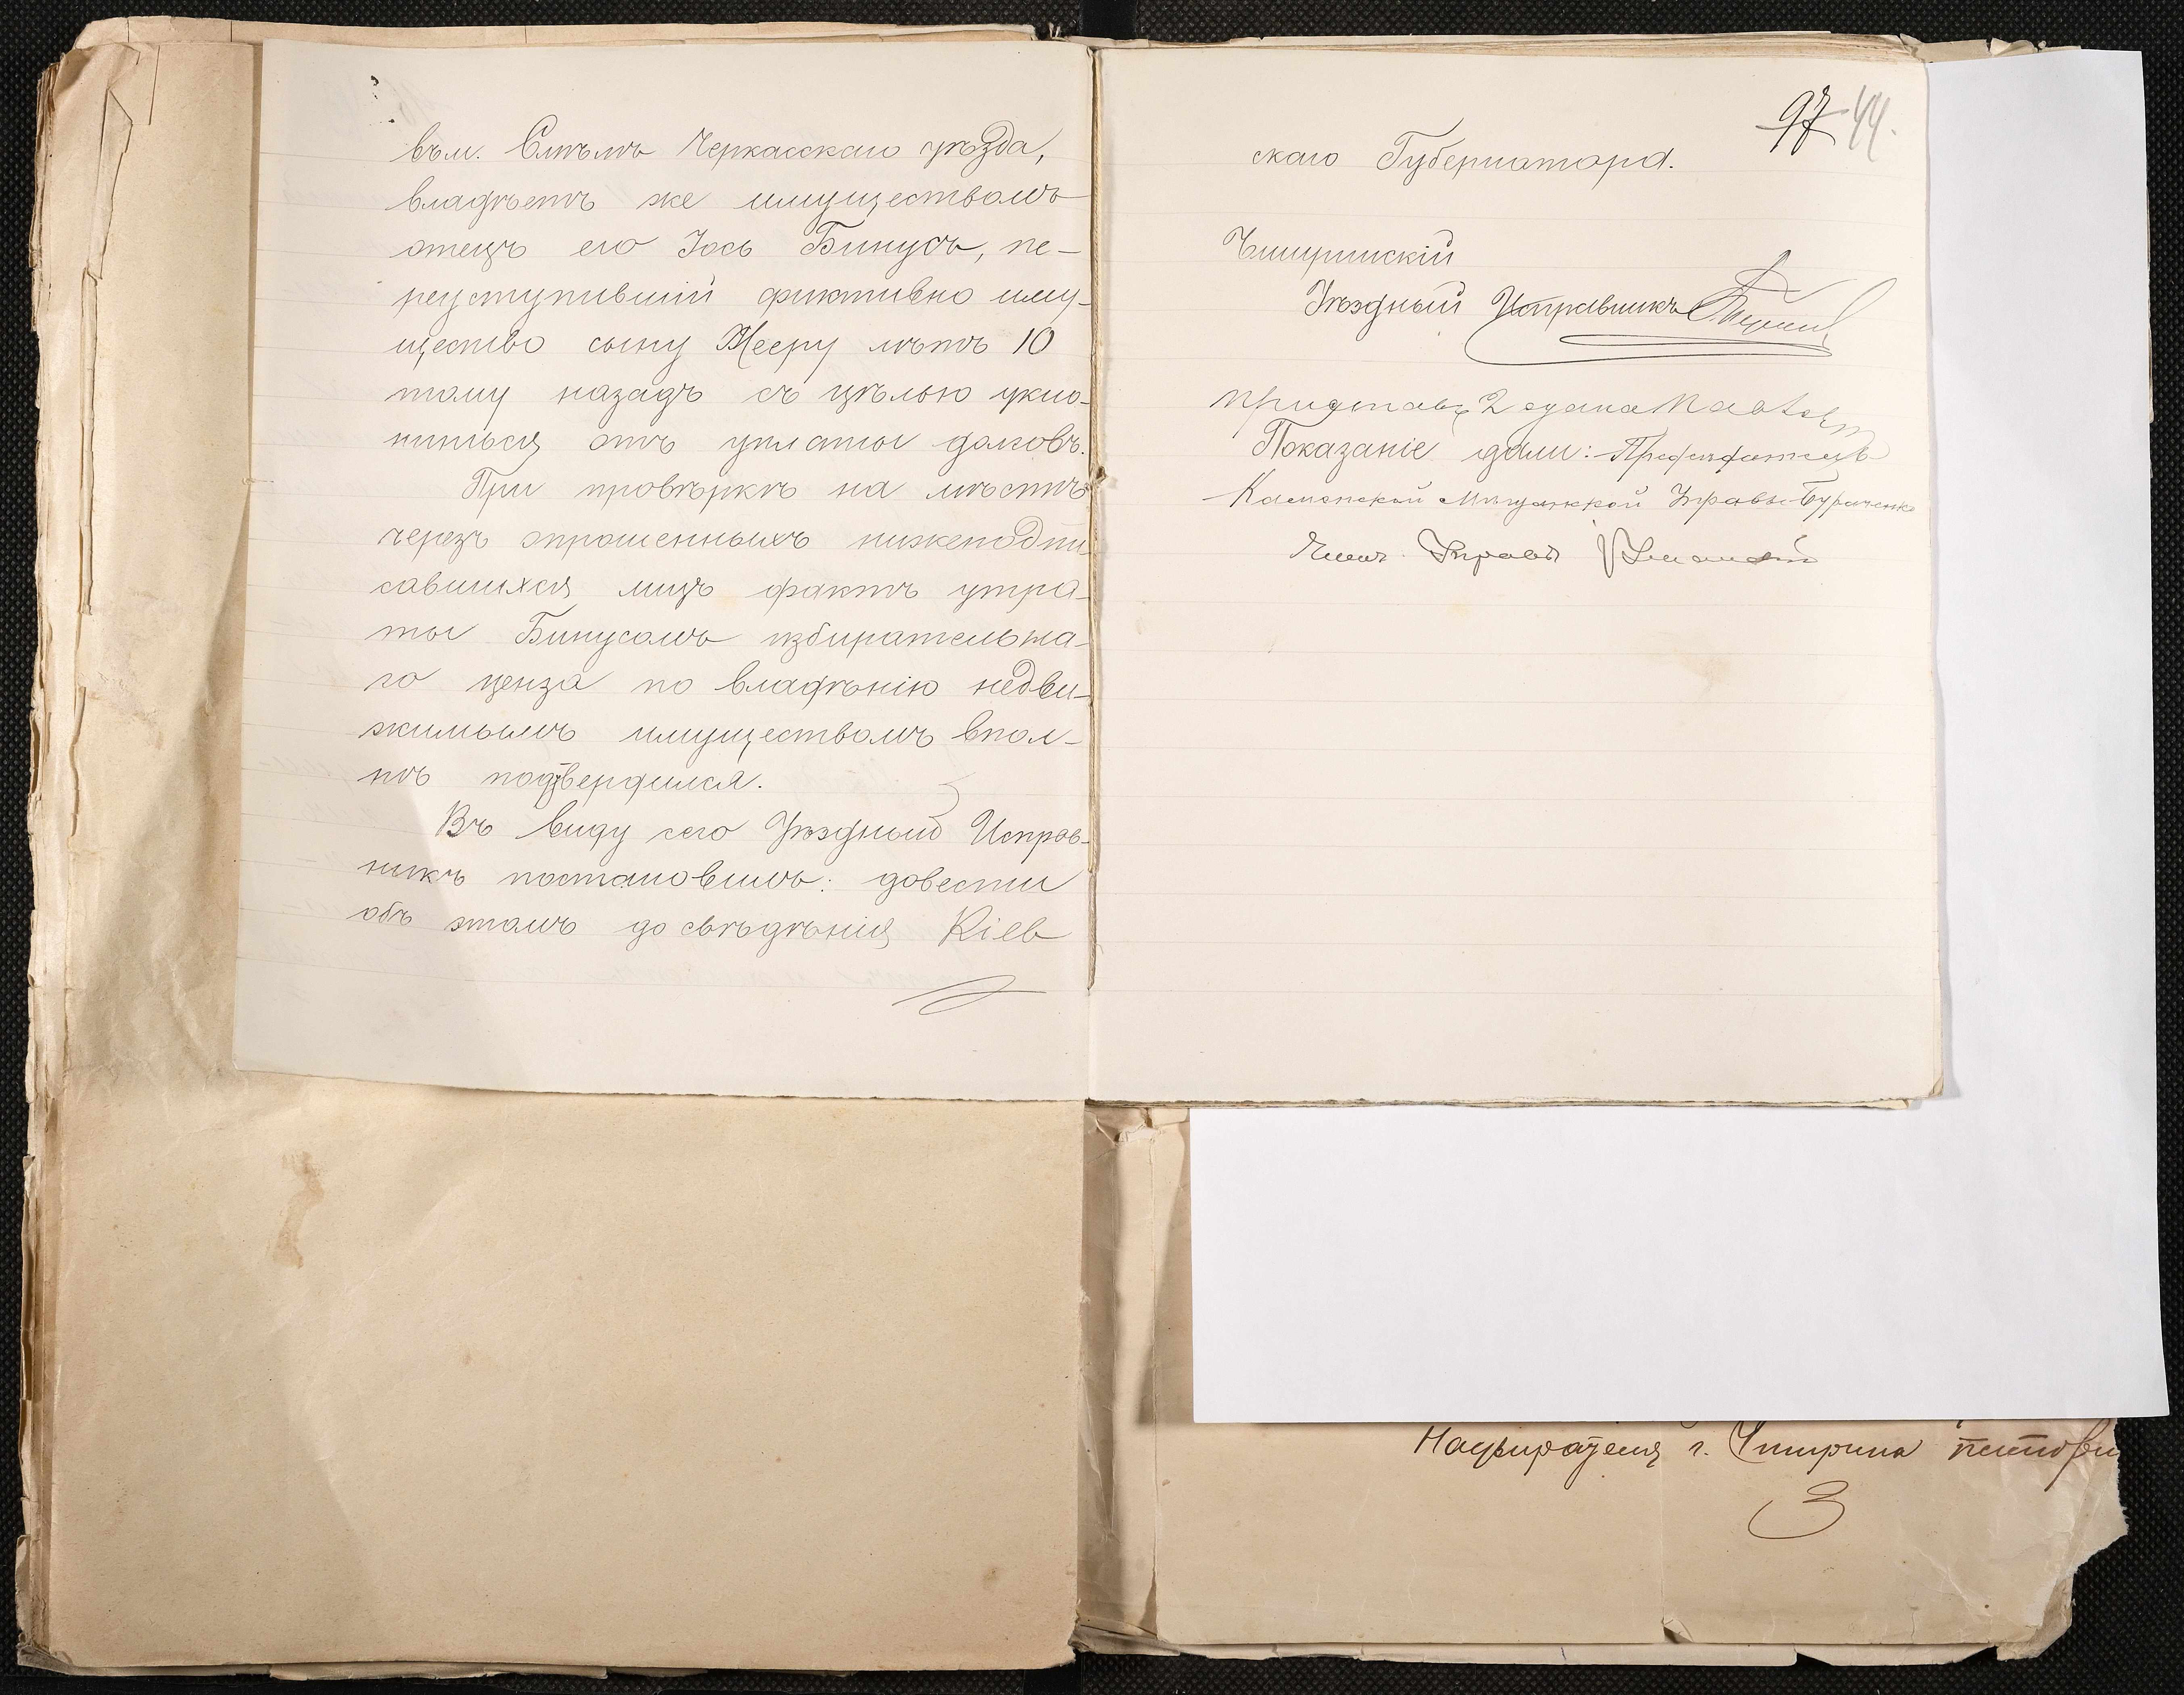 въ м. Смѣлѣ Черкасскаго уѣзда,
владѣетъ же имуществомъ
отецъ его Іось Бинусъ, пе-
реуступившій фиктивно иму-
щество сыну Мееру лѣтъ 10
тому назадъ съ цѣлью укло-
ниться отъ уплаты долговъ.
При провѣркѣ на мѣстѣ
черезъ опрошенныхъ нижеподпи
савшихся лицъ фактъ утра-
ты Бинусомъ избирательна-
го ценза по владѣнію недви-
жимымъ имуществомъ впол-
нѣ подтвердился.
Въ виду сего Уѣздный Исправ-
никъ постановилъ: довести
объ этомъ до свѣдѣнія Кіев
97 44.
скаго Губернатора.
Чигиринскій
Уѣздный Исправникъ
Приставъ 2 стана
Показаніе дали: Предсѣдатель
Каменской Мѣщанской Управы Бураченко
Членъ Управы
Надзирателя г. Чигирина